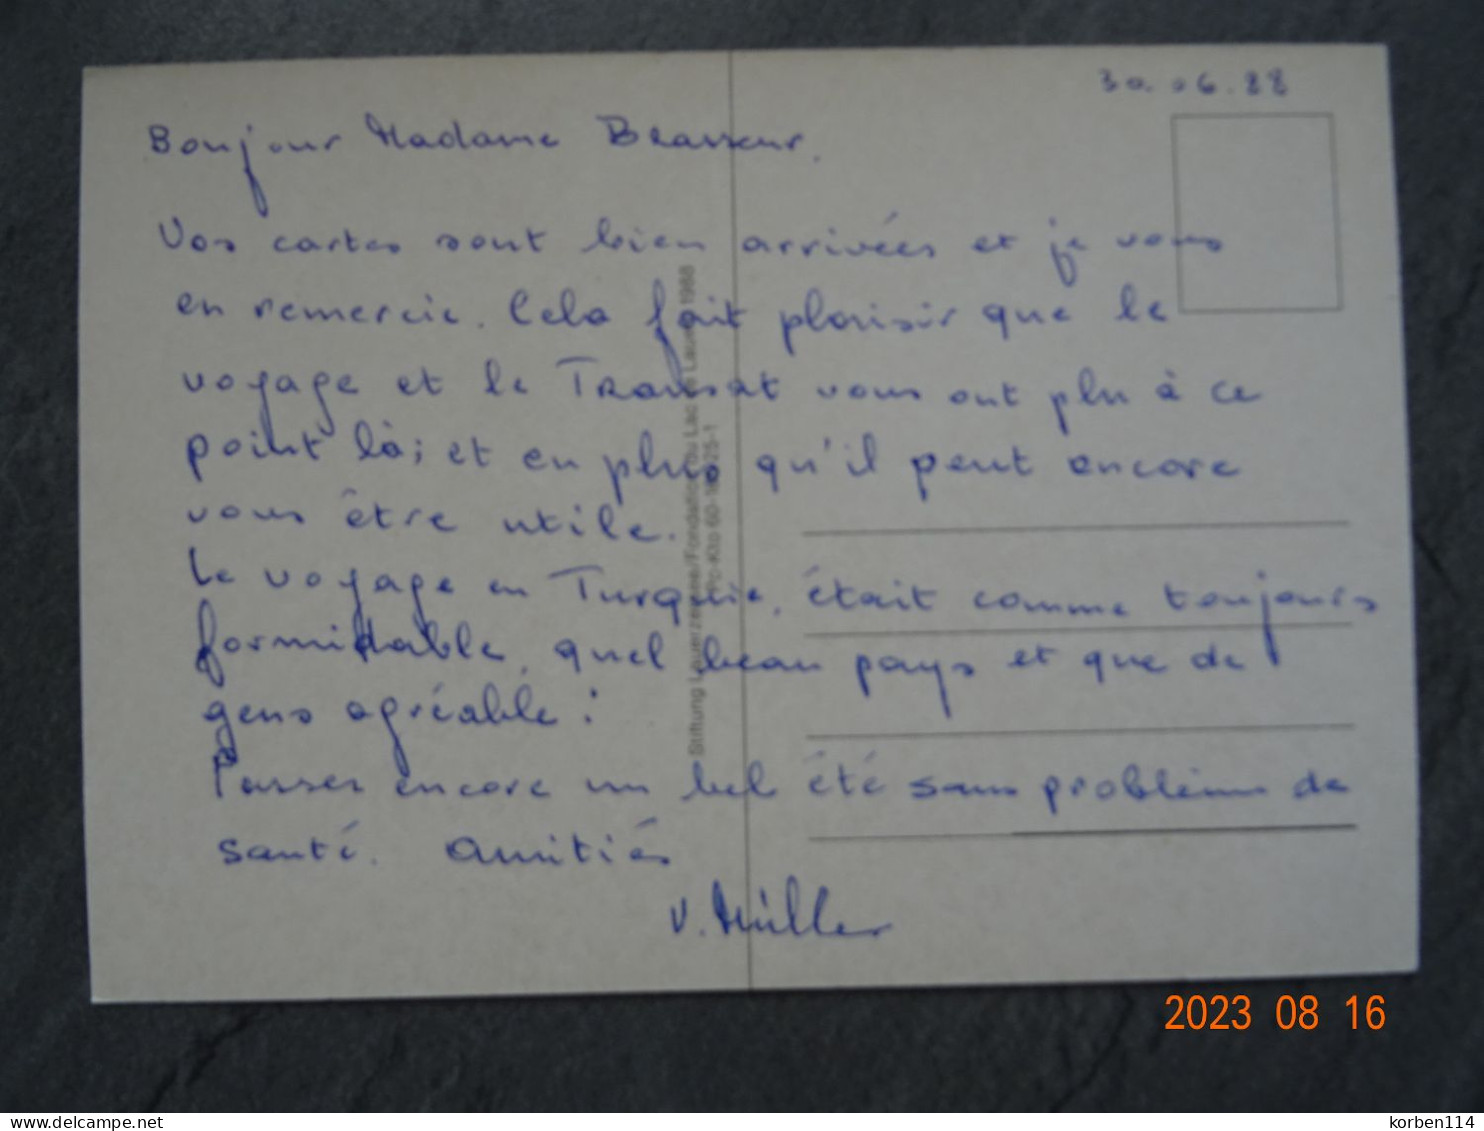 30.06.88
Bonjour Madame Brasseur.
Vos cartes sont bien arrivées et je vous
en remercie. Cela fait plaisir que le
voyage et le Transat vous ont plu à ce
point là; et en plus qu'il peut encore
vous être utile.
Le voyage en Turquie, était comme toujours
formidable, quel beau pays et que de
gens agréable!
Passer encore un bel été sans problème de
santé. Amitiés
V. Müller
Stiftung Lauerzersee/Fondation du Lac de Lauerz 1988
PC-Kto 60-
25-1
2023 08 16
delcampe.net
korben114